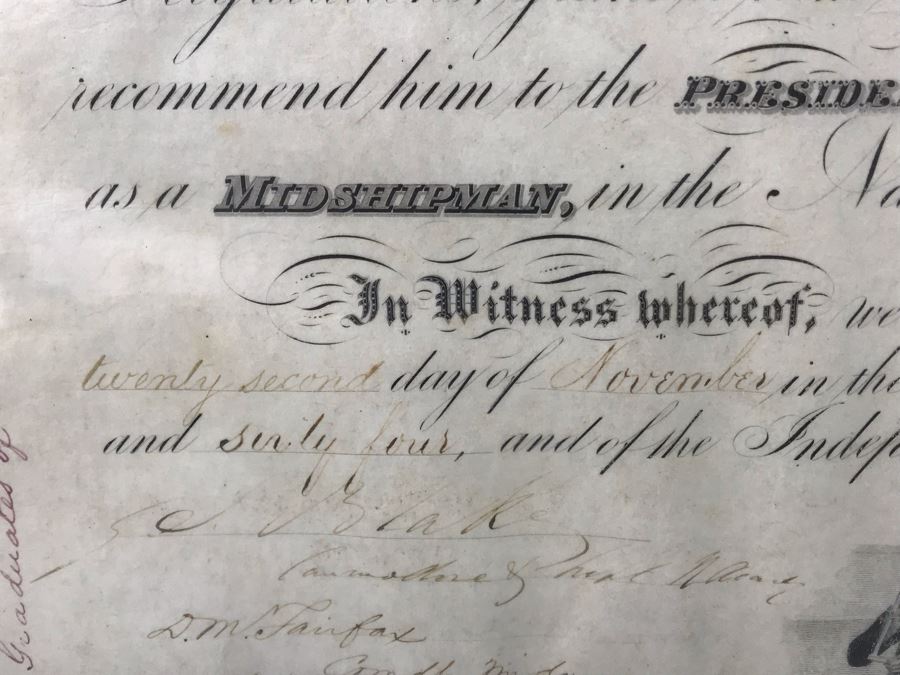 recommend him to the PRESIDE
as a MIDSHIPMAN, in the Na
In Witness whereof, we
twenty second day of November in the
and sixty four, and of the Indep
Blake
Commodore & Supt N Academy
D. M. Fairfax
Comdt Mids
Graduates of